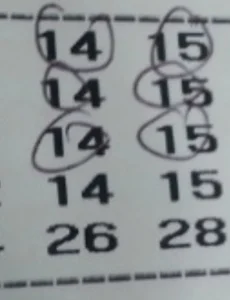 14 15
14 15
14 15
14 15
26 28